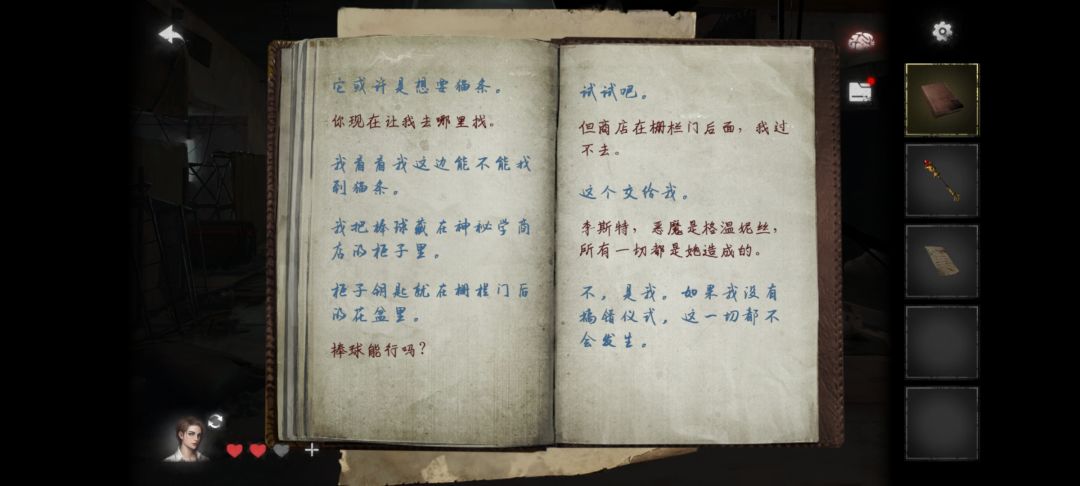 它或许是想要猫条。
你现在让我去哪里找。
我看看我这边能不能找
到猫条。
我把棒球藏在神秘学商
店的柜子里。
柜子钥匙就在栅栏门后
的花盆里。
棒球能行吗？
试试吧。
但商店在栅栏门后面，我过
不去。
这个交给我。
李斯特，恶魔是格温妮丝，
所有一切都是她造成的。
不，是我。如果我没有
搞错仪式，这一切都不
会发生。